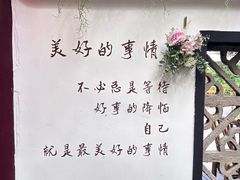 美好的事情
不必总是等待
好事的降临
自己
就是最美好的事情